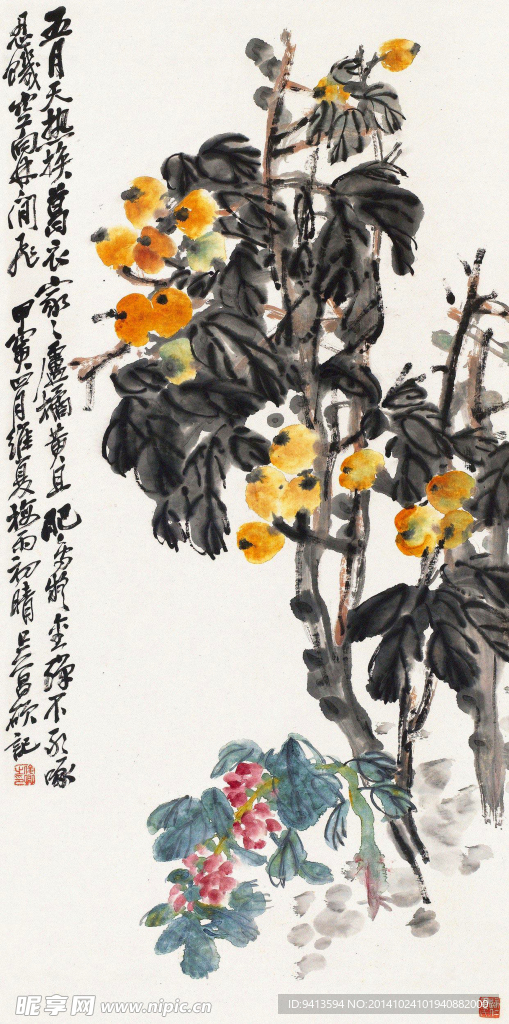 五月天热换葛衣家〻卢橘黄且肥鸟疑金弹不敢啄
忍饥空向林间飞 甲寅四月维夏梅雨初晴 吴昌硕记
昵享网 www.nipic.cn
ID:9413594 NO:20141024101940882000